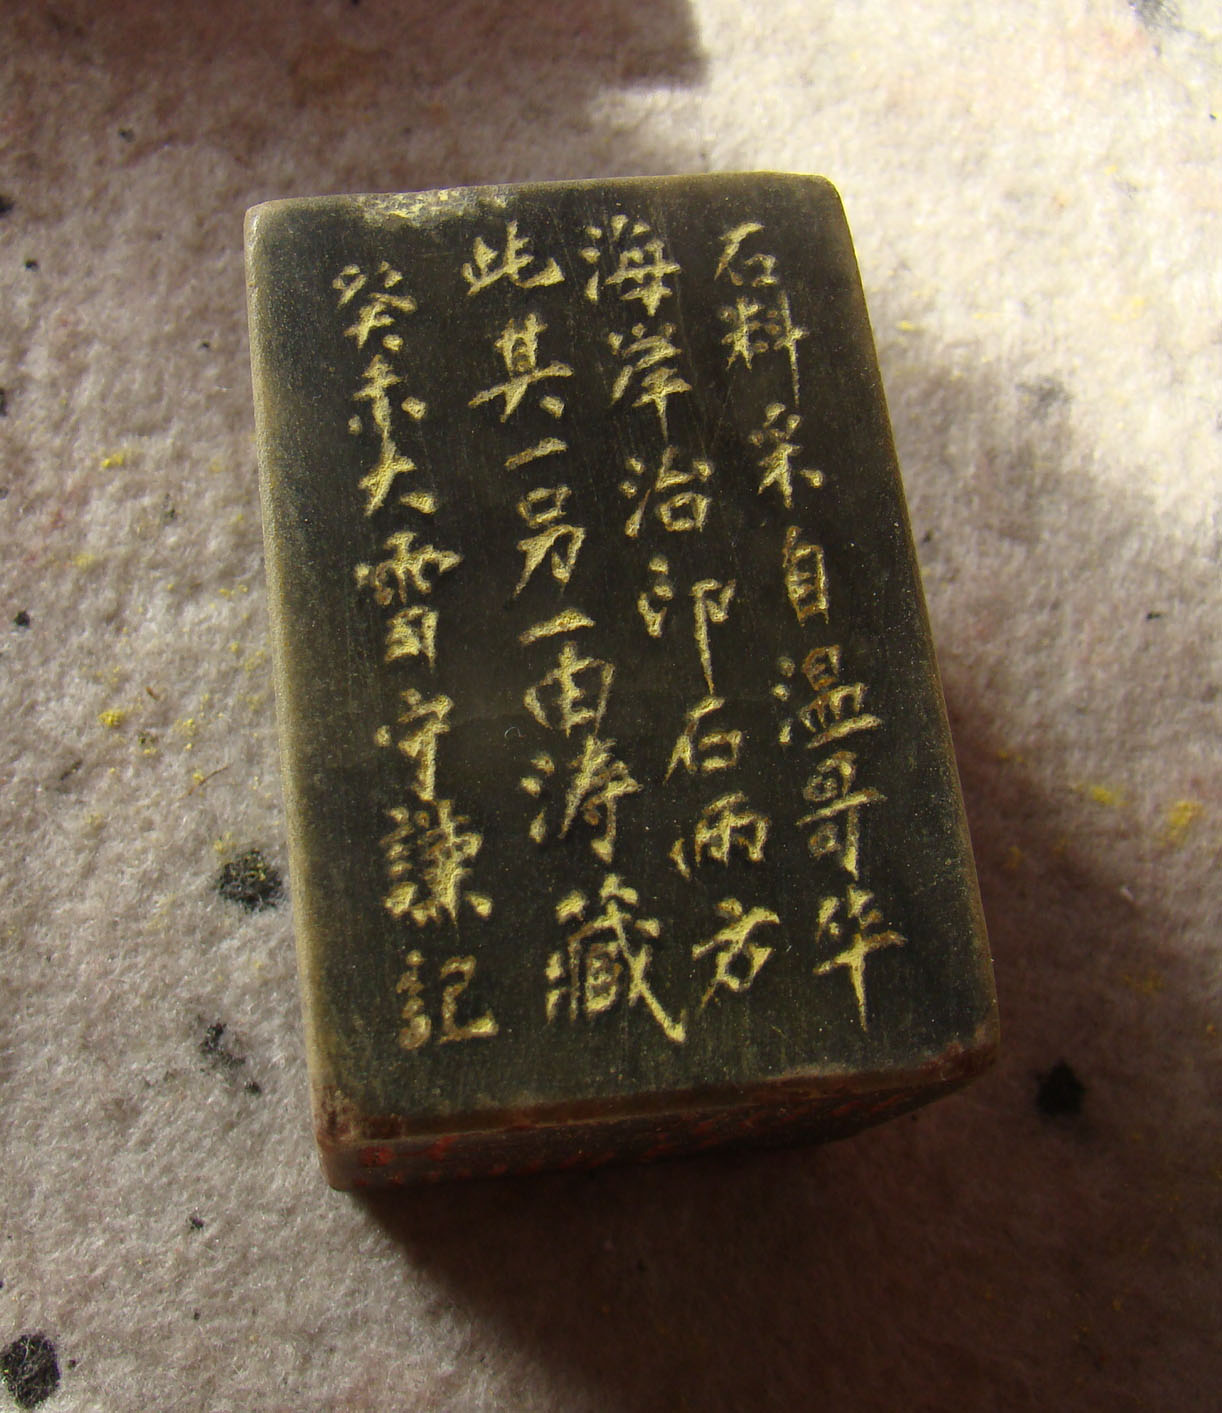 石料采自温哥华
海岸治印石两方
此其一另一由涛藏
癸未大雪守谦记